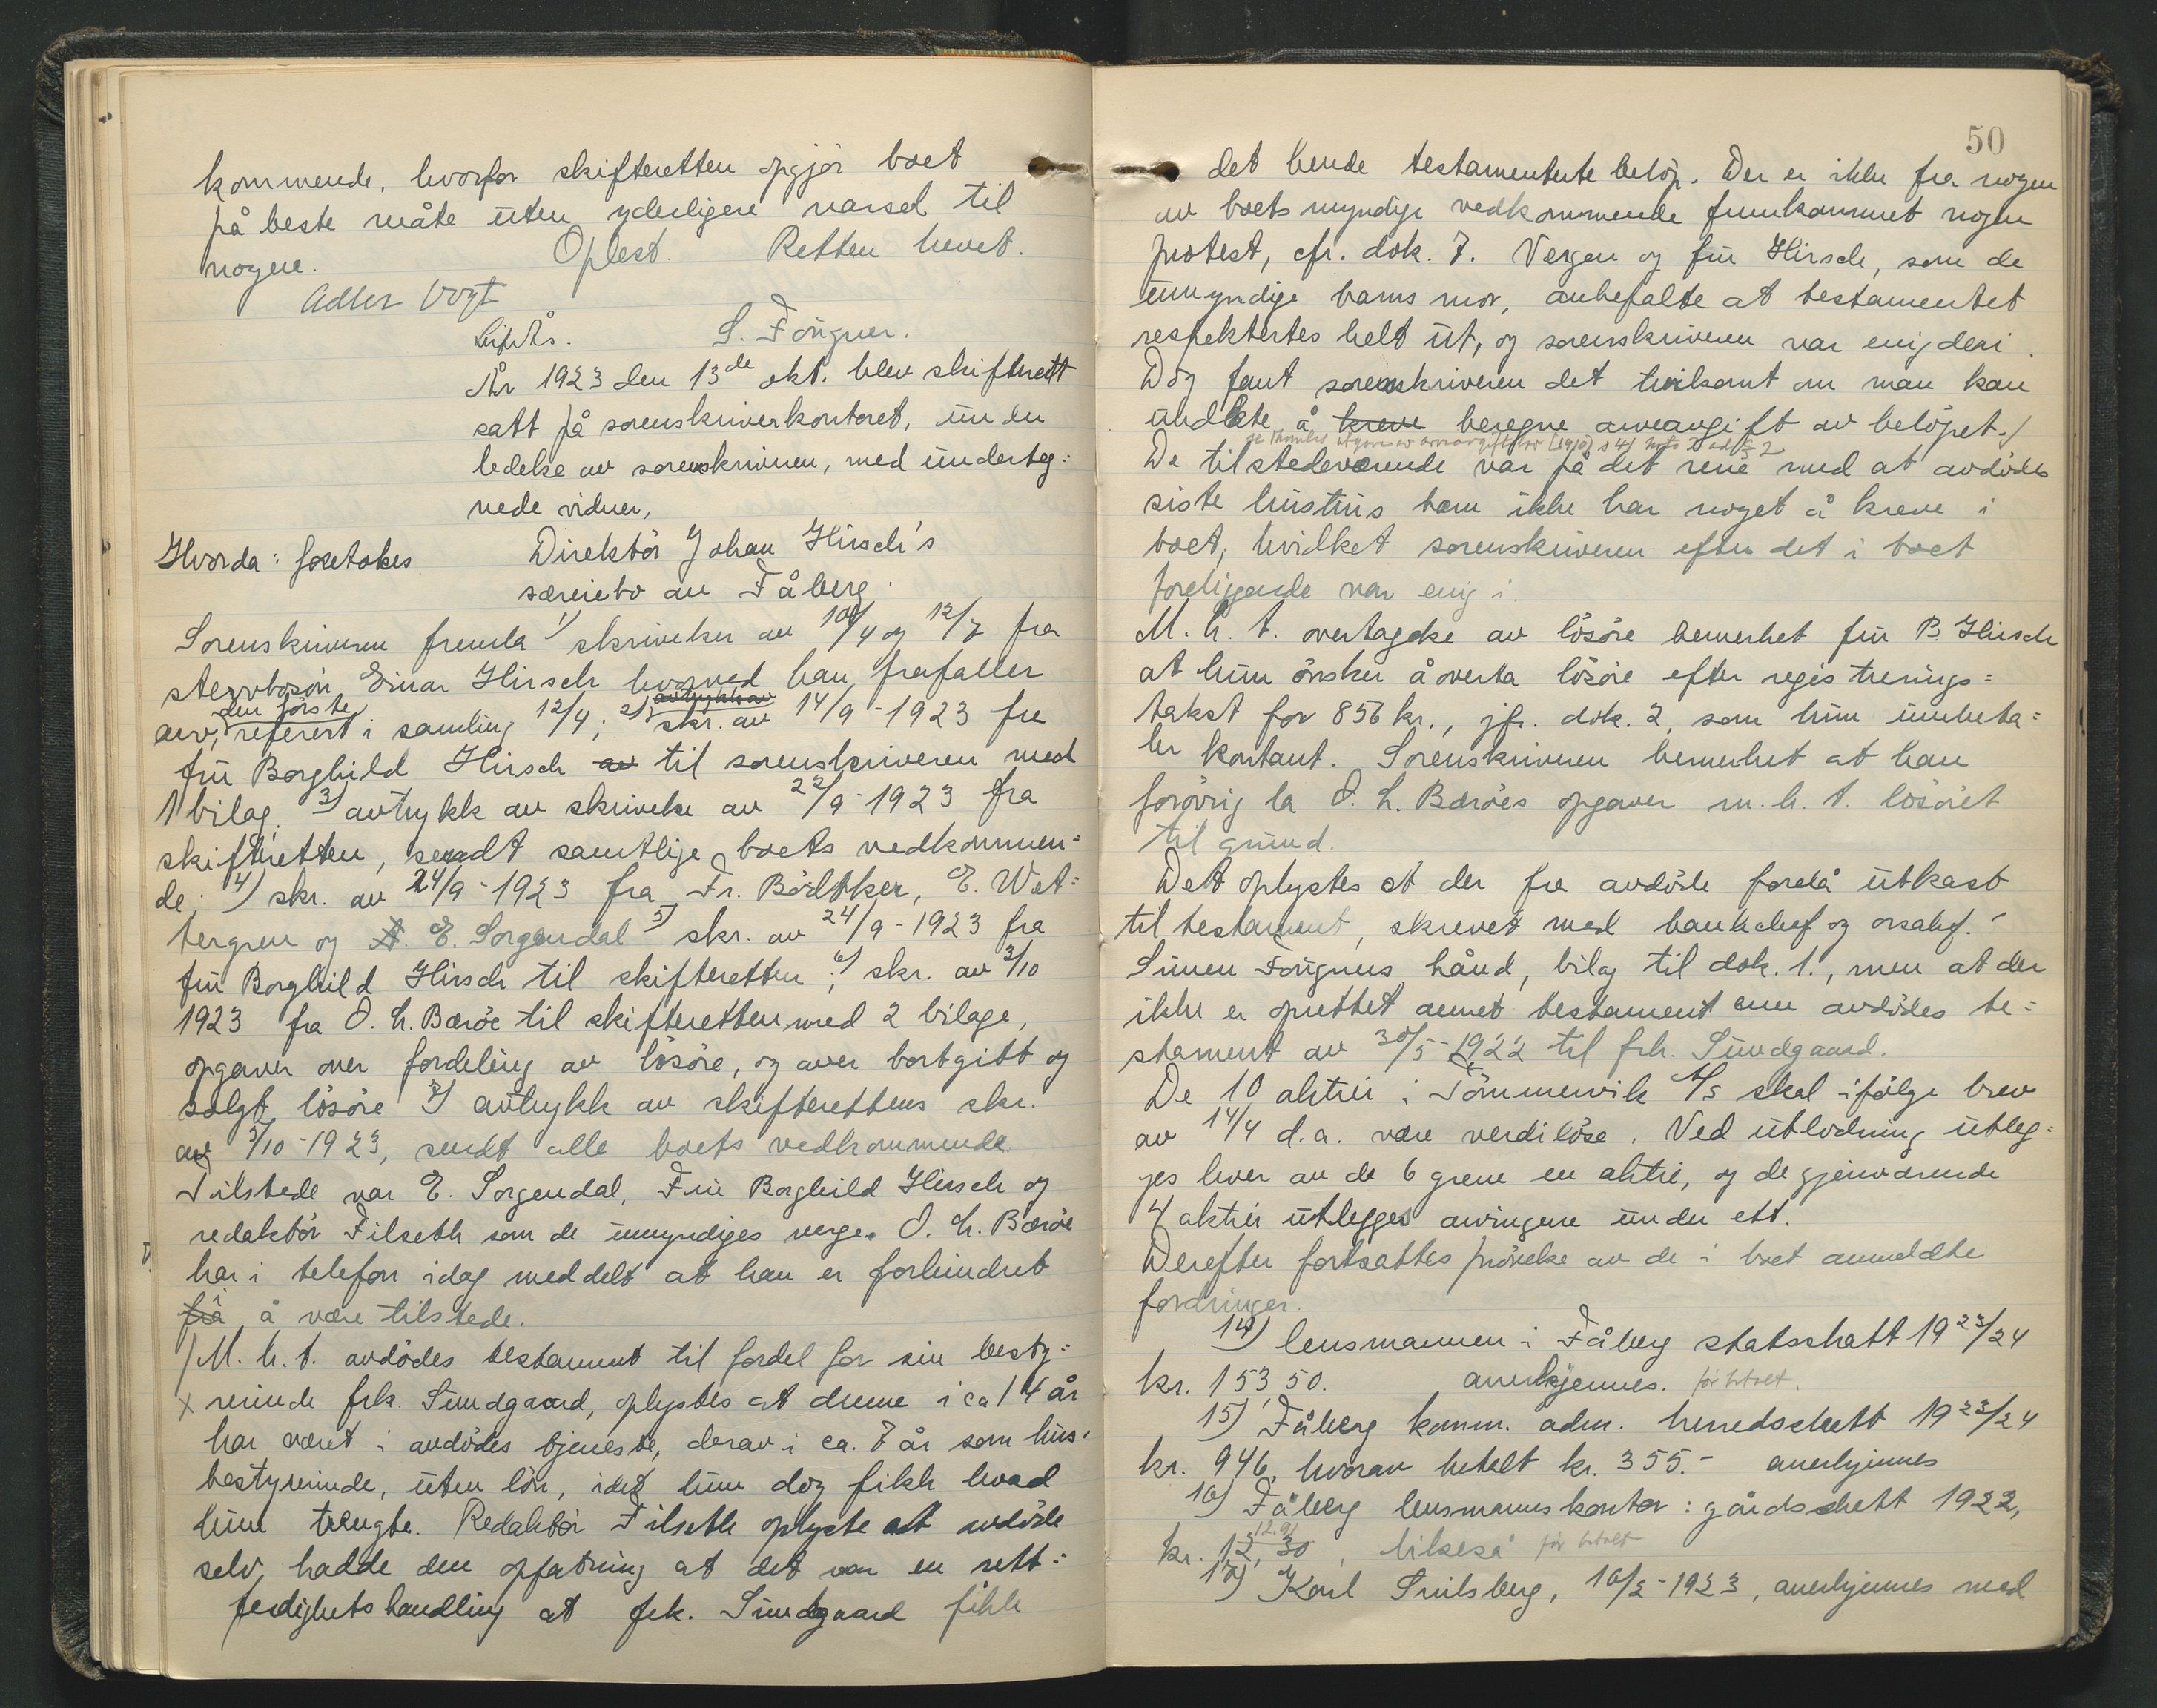 kommende, hvorfor skifteretten opgjör boet
på beste måte uten yderligere varsel til
nogen. Oplest. Retten hevet.
Adler Vogt
S. Fougner.
År 1923 den 13de okt. blev skifterett
satt på sorenskriverkontoret, under
ledelse av sorenskriveren, med underteg=
nede vidner,
Hvorda: foretokes Direktör Johan Hirsch's
særeiebo av Fåberg.
Sorenskriveren fremla 1) skrivelser av 10/4 og 12/7 fra
stervbosön Einar Hirsch hvorved han frafaller
arv, den förste referert i samling 12/4; 2) avtrykk av skr. av 14/9-1923 fra
fru Borghild Hirsch av til sorenskriveren med
1 bilag, 3) avtrykk av skrivelse av 22/9-1923 fra
skifteretten, sendt samtlige boets vedkommen=
de; 4) skr. av 24/9-1923 fra Fr. Bödtker, E. Wet=
tergren og E. Sorgendal 5) skr. av 24/9-1923 fra
fru Borghild Hirsch til skifteretten, 6) skr. av 3/10
1923 fra O. H. Baröe til skifteretten med 2 bilage,
opgaver over fordeling av lösöre, og over bortgitt og
solgt lösöre 7) avtrykk av skifterettens skr.
av 3/10-1923, sendt alle boets vedkommende.
Tilstede var E. Sorgendal, Fru Borghild Hirsch og
redaktör Filseth som de umyndiges verge. O. H. Baröe
har i telefon idag meddelt at han er forhindret
fra å være tilstede.
M. h. t. avdödes testament til fordel for sin besty=
x rerinde frk. Sundgaard, oplystes at denne i ca 14 år
har været i avdödes tjeneste, derav i ca. 7 år som hus=
bestyrerinde, uten lön, idet hun dog fikk hvad
hun trengte. Redaktör Filseth oplyste at avdöde
selv hadde den opfatning at det var en rett=
ferdighetshandling at frk. Sundgaard fikk
50
det hende testamenterte belöp. Der er ikke fra nogen
av boets myndige vedkommende fremkommet nogen
protest, cfr. dok. 7. Vergen og fru Hirsch, som de
umyndige barns mor, anbefalte at testamentet
respektertes helt ut, og sorenskriveren var enig deri.
Dog fant sorenskriveren det tvilsomt om man kan
undlate å kreve beregne arveavgift av belöpet./
De tilstedeværende var på det rene med at avdödes
siste hustrus barn ikke har noget å kreve i
boet, hvilket sorenskriveren efter det i boet
foreliggende var enig i.
M. h. t. overtagelse av lösöre bemerket fru B. Hirsch
at hun önsker å overta lösöre efter registrerings=
takst for 856 kr., jfr. dok. 2, som hun innbeta=
ler kontant. Sorenskriveren bemerket at han
forövrig la O. H. Baröes opgaver m. h. t. lösöret
til grund.
Det oplystes at der fra avdöde forelå utkast
til testament, skrevet med bankchef og orsakf.
Simen Fougners hånd, bilag til dok. 1., men at der
ikke er oprettet annet testament enn avdödes te=
stament av 30/5-1922 til frk. Sundgaard.
De 10 aktier i Tömmervik A/S skal ifölge brev
av 14/4 d.a. være verdilöse. Ved utlodning utleg=
ges hver av de 6 grene en aktie, og de gjenværende
4 aktier utlegges arvingene under ett.
Derefter fortsattes prövelse av de i boet anmeldte
fordringer.
14) lensmannen i Fåberg statsskatt 1923/24
kr. 153,50. anerkjennes. för betalt.
15) Fåberg komm. adm. herredsskatt 1923/24
kr. 946, hvorav betalt kr. 355.- anerkjennes
16) Fåberg lensmannskontor: gårdsskatt 1922,
kr. 12,30, likeså för betalt
17) Karl Suilsberg, 16/2-1923, anerkjennes med